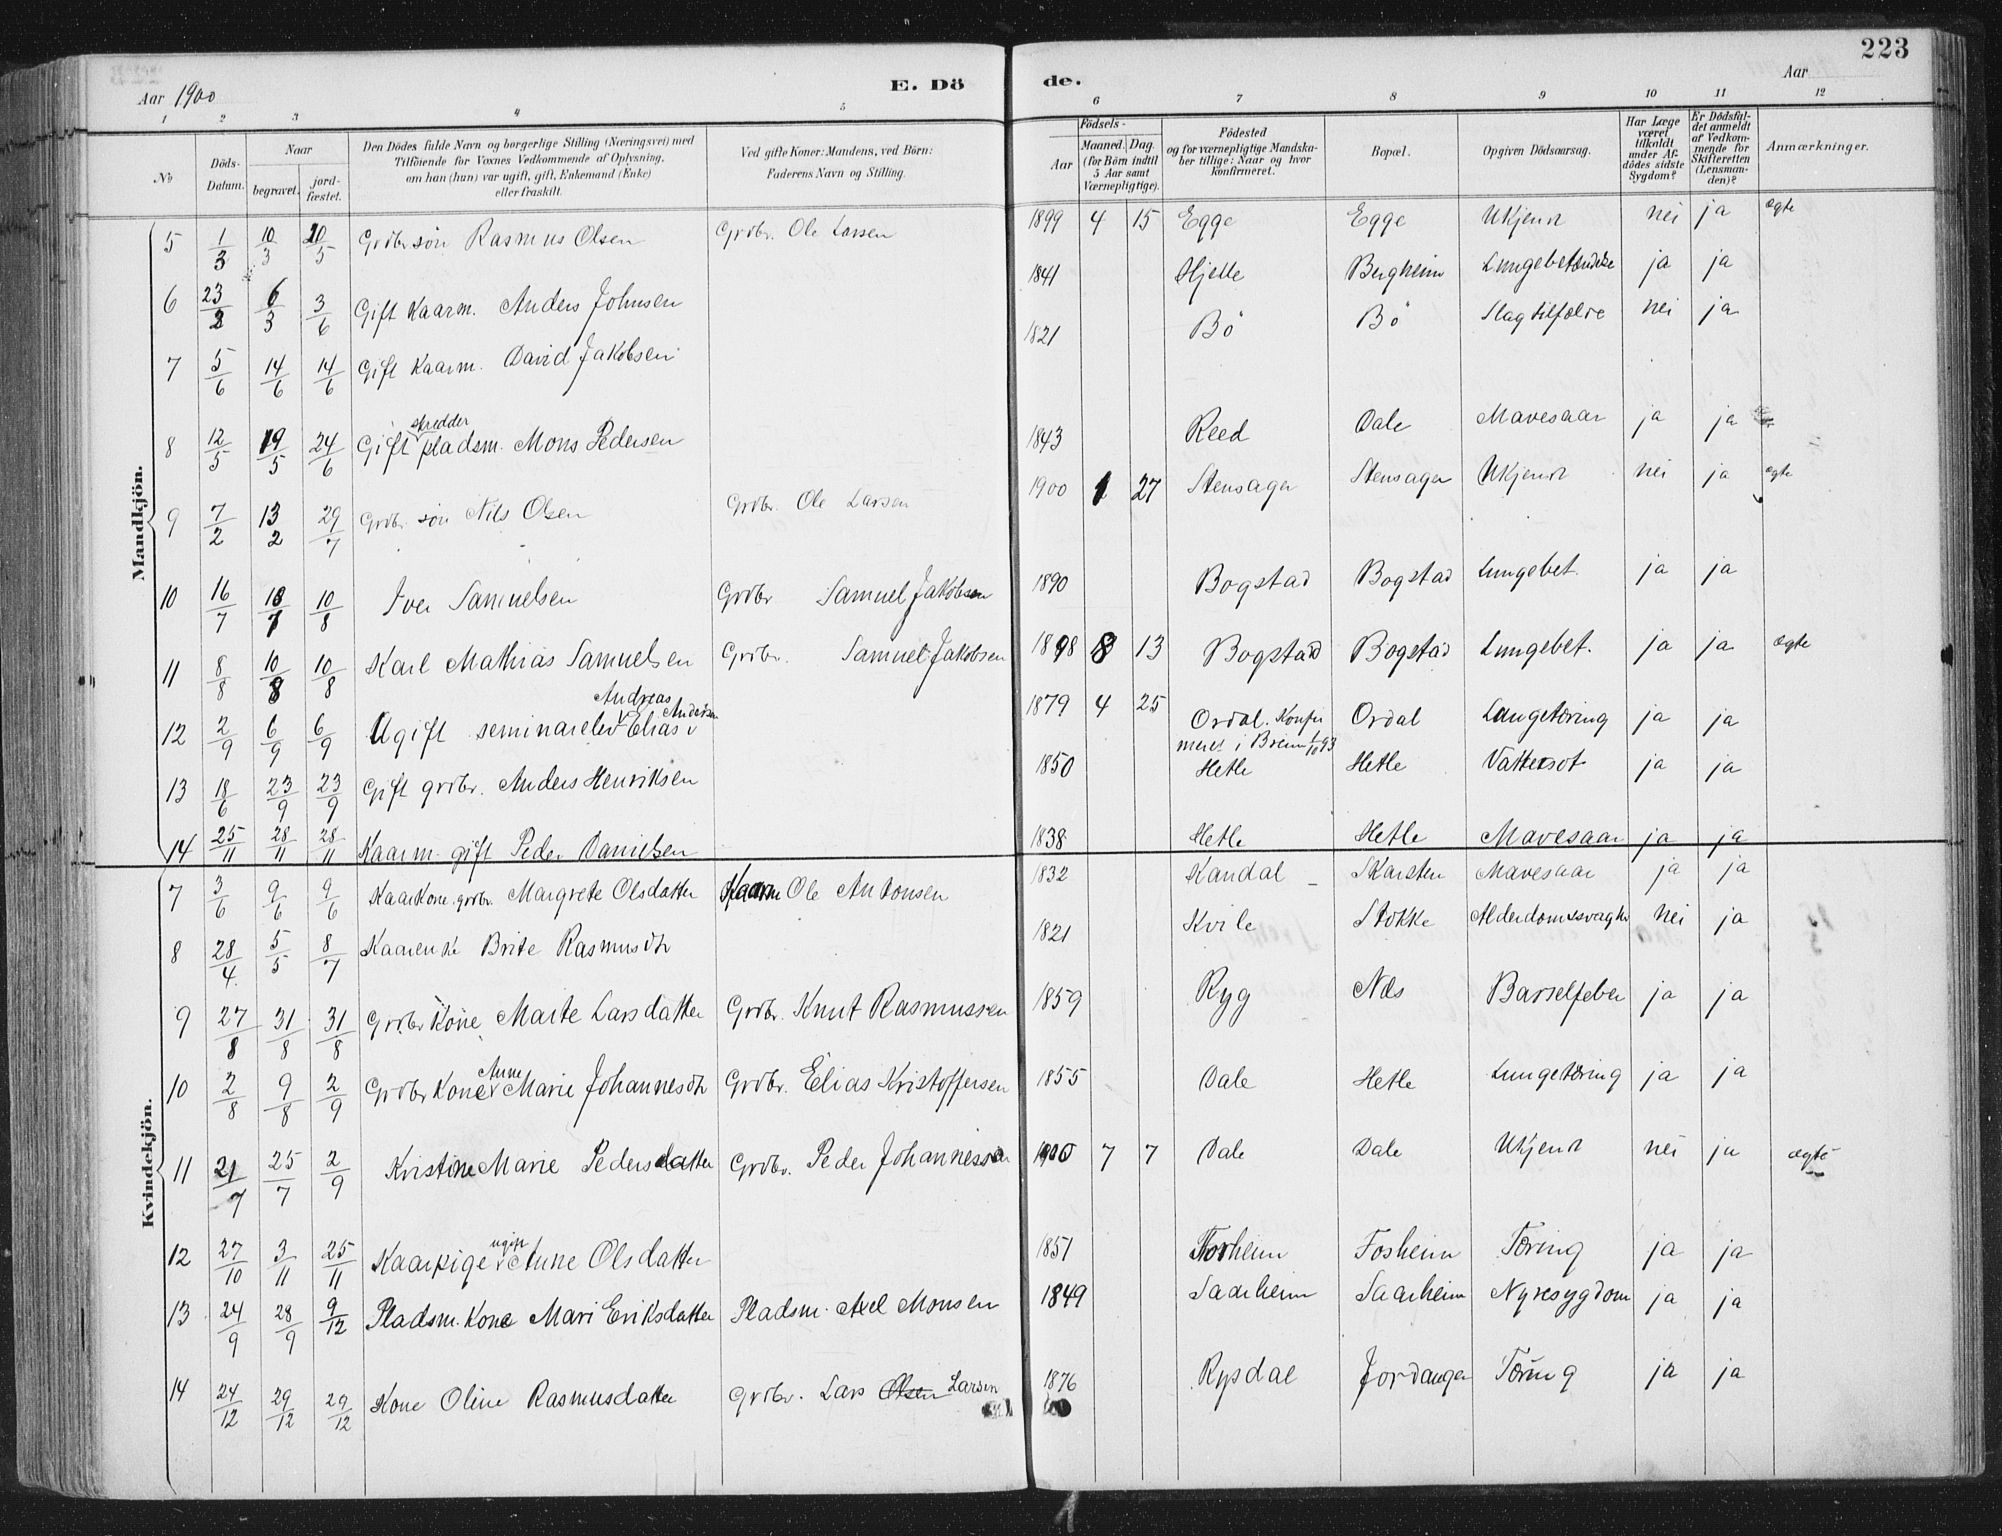 223
Aar 1900 E. Dö de. Aar
1 2 3 4 5 6 7 8 9 10 11 12
No
Döds-Datum.
Naar begravet. jordfæstet.
Den Dödes fulde Navn og borgerlige Stilling (Næringsvei) med Tilföiende for Voxnes Vedkommende af Oplysning, om han (hun) var ugift, gift, Enkemand (Enke) eller fraskilt.
Ved gifte Koner: Mandens, ved Börn: Faderens Navn og Stilling.
Födsels-
Aar
Maaned. Dag. (for Börn indtil 5 Aar samt Værnepligtige).
Födested og for værnepligtige Mandskaber tillige: Naar og hvor konfirmeret.
Bopæl.
Opgiven Dödsaarsag.
Har Læge været tilkaldt under Afdödes sidste Sygdom?
Er Dödsfaldet anmeldt af Vedkommende for Skifteretten (Lensmanden)?
Anmærkninger.
Mandkjön.
5 1/3 10/3 20/5 Grdbr søn Rasmus Olsen Grdbr. Ole Larsen 1899 4 15 Egge Egge Ukjend nei ja ægte
6 23/2 6/3 3/6 Gift Kaarm. Anders Johnsen 1841 Hjelle Bergheim Lungebetændelse ja ja
7 5/6 14/6 14/6 Gift Kaarm. David Jakobsen 1821 Bö Bö Slagtilfælde nei ja
8 12/5 19/5 24/6 Gift skredder pladsm. Mons Pedersen 1843 Reed Dale Mavesaar ja ja
9 7/2 13/2 29/7 Grdbr. søn Nils Olsen Grdbr. Ole Larsen 1900 1 27 Stensager Stensager Ukjend nei ja ægte
10 16/7 18/7 10/8 Iver Samuelsen Grdbr Samuel Jakobsen 1890 Bogstad Bogstad Lungebet. ja ja
11 8/8 10/8 10/8 Karl Mathias Samuelsen Grdbr. Samuel Jakobsen 1898 8 13 Bogstad Bogstad Lungebet. ja ja ægte
12 2/9 6/9 6/9 Ugift seminarelev Andreas Elias Andersen 1879 4 25 Ordal. Konfirmeret i Breim 1/10 93 Ordal Lungetæring ja ja
13 18/6 23/9 23/9 Gift grdbr. Anders Henriksen 1850 Hetle Hetle Vattersot ja ja
14 25/11 28/11 28/11 Kaarm. gift Peder Danielsen 1838 Hetle Hetle Mavesaar ja ja
Kvindekjön.
7 3/6 9/6 9/6 Kaarkone. grdbr. Margrete Olsdatter Kaarm Ole Antonsen 1832 Kandal Skarsten Mavesaar ja ja
8 28/4 5/5 8/7 Kaarenke Brite Rasmusdtr 1821 Kvile Stokke Alderdomssvaghed nei ja
9 27/8 31/8 31/8 Grdbr Kone Marte Larsdatter Grdbr. Knut Rasmussen 1859 Ryg Næs Barselfeber ja ja
10 2/8 9/8 2/9 Grdbr Kone Anne Marie Johannesdtr Grdbr. Elias Kristoffersen 1855 Dale Hetle Lungetæring ja ja
11 21/7 25/7 2/9 Kristine Marie Pedersdatter Grdbr. Peder Johannessen 1900 7 7 Dale Dale Ukjend nei ja ægte
12 27/10 3/11 25/11 Kaarpige ugift Anne Olsdatter 1851 Forheim Fosheim Tæring ja ja
13 24/9 28/9 9/12 Pladsm. Kone Mari Eriksdatter Pladsm. Axel Monsen 1849 Saarheim Saarheim Nyresygdom ja ja
14 24/12 29/12 29/12 Kone Oline Rasmusdatter Grdbr. Lars Olsen Larsen 1876 Rysdal Jordanger Tæring ja ja